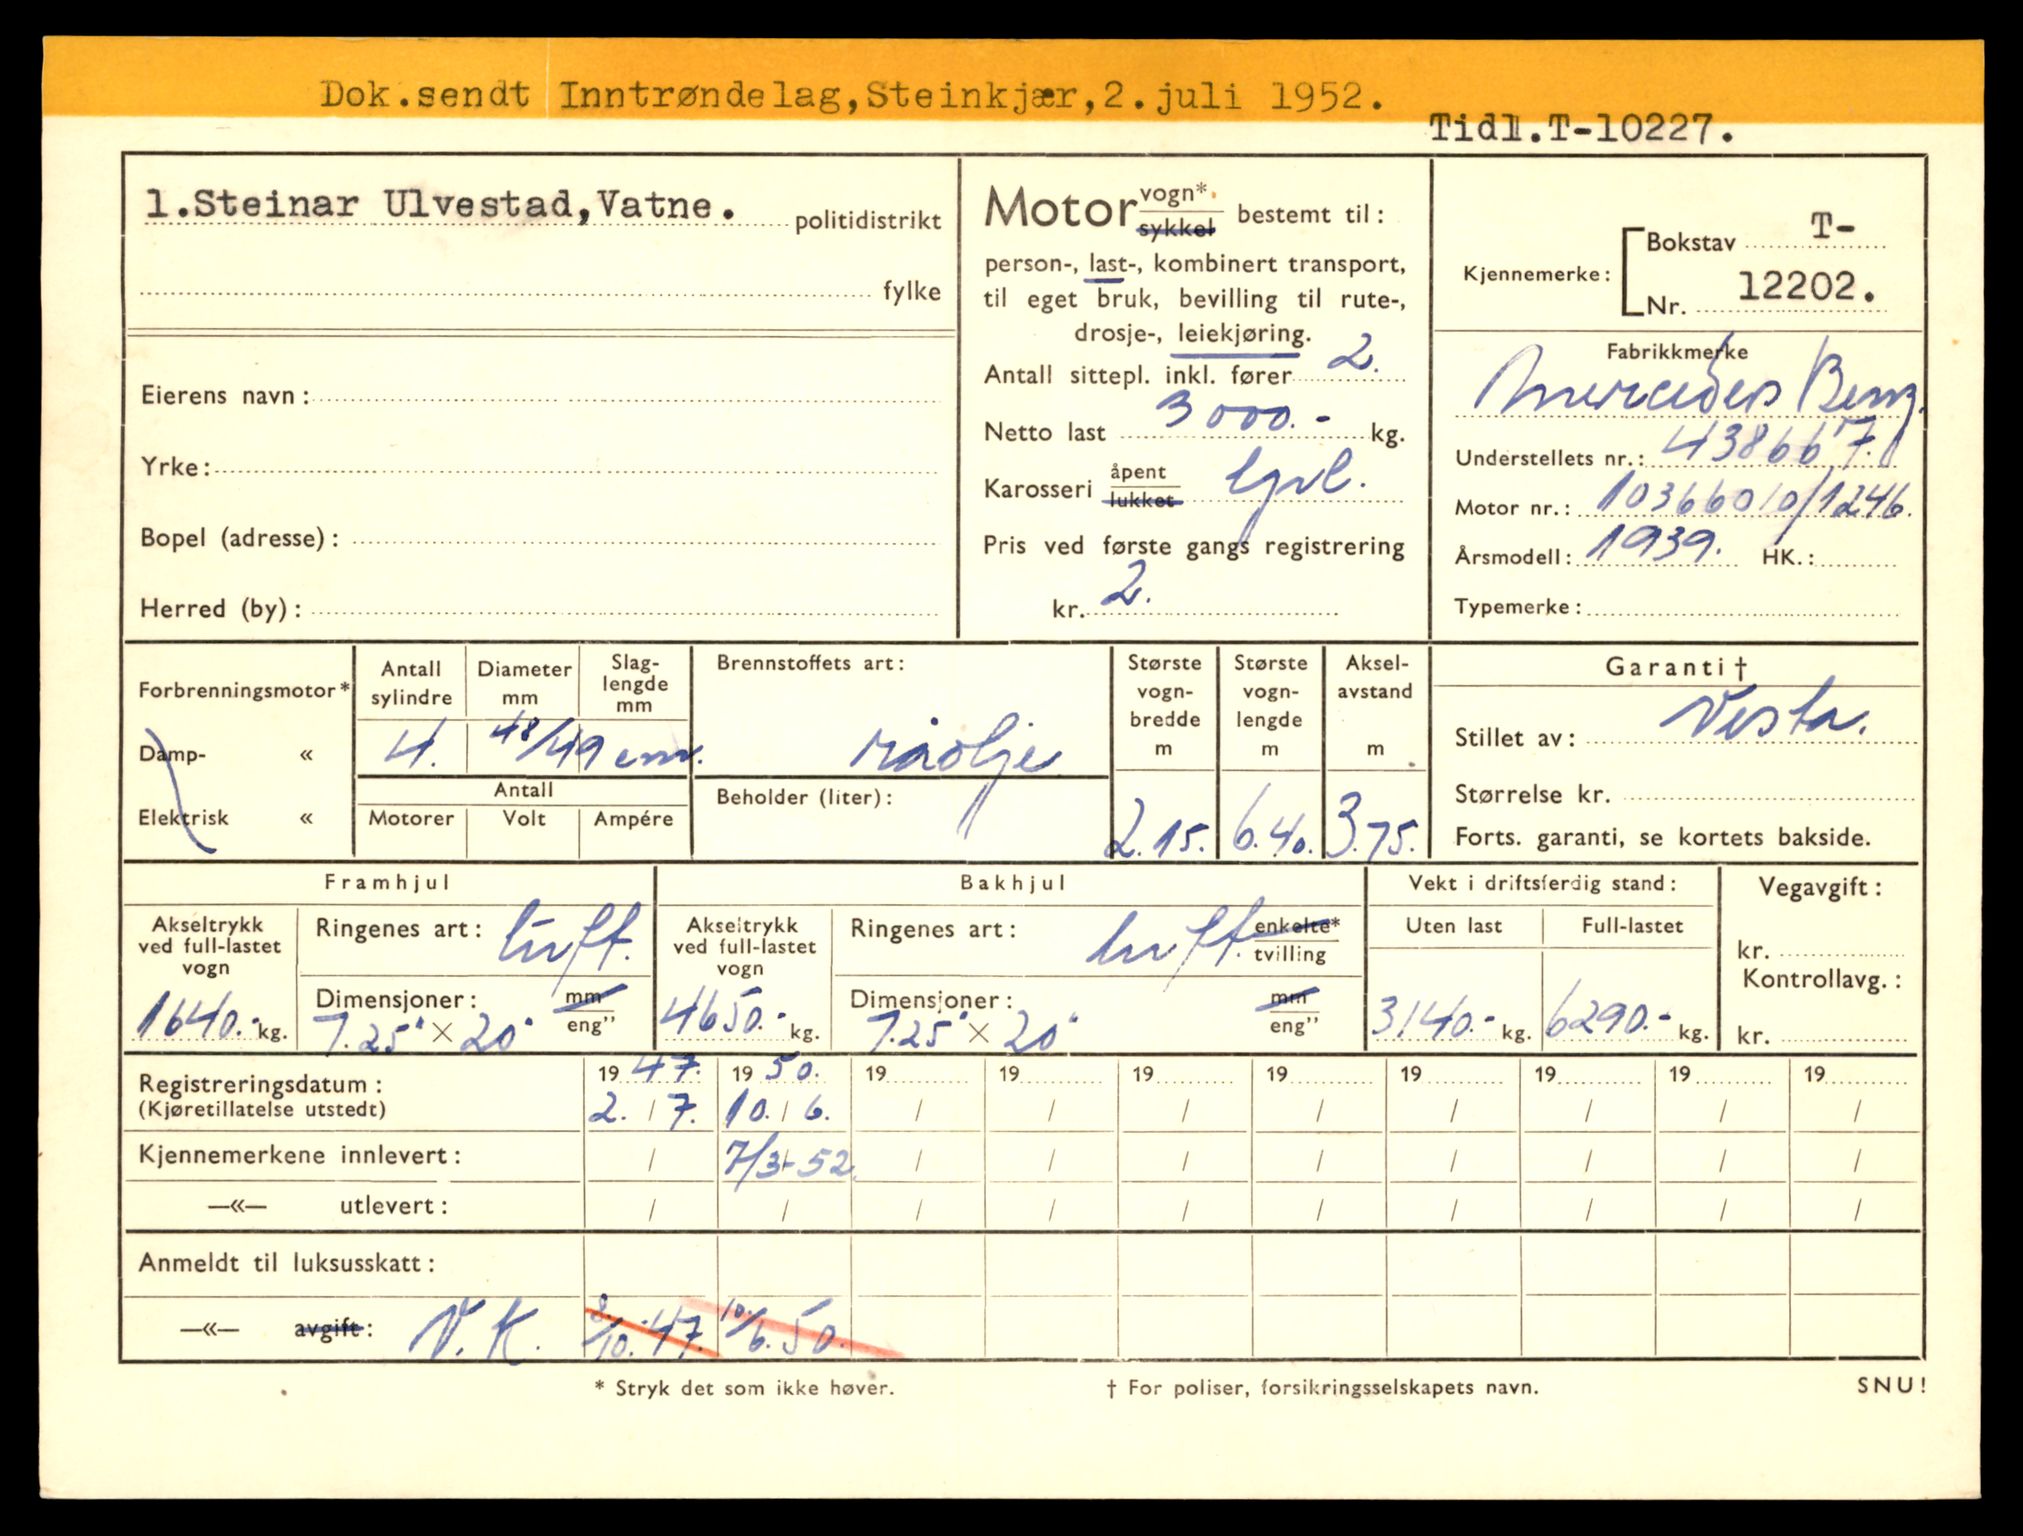 Dok.sendt Inntrøndelag,Steinkjær,2.juli 1952.
Tidl.T-10227.
1.Steinar Ulvestad,Vatne. politidistrikt
fylke
Eierens navn:
Yrke:
Bopel (adresse):
Herred (by):
Motor vogn* sykkel bestemt til:
person-, last-, kombinert transport,
til eget bruk, bevilling til rute-,
drosje-, leiekjøring.
Antall sittepl. inkl. fører 2.
Netto last 3000.- kg.
Karosseri åpent lukket
Pris ved første gangs registrering
kr. 2.
Kjennemerke: Bokstav T-
Nr. 12202.
Fabrikkmerke
Mercedes Benz.
Understellets nr.: 438667.
Motor nr.: 10366010/1246.
Årsmodell: 1939. HK.:
Typemerke:
Forbrenningsmotor*
Damp- «
Elektrisk «
Antall sylindre
4.
Diameter mm
Slag-lengde mm
48/49 cm.
Antall
Motorer Volt Ampére
Brennstoffets art:
råolje
Beholder (liter):
Største vogn-bredde m
2.15.
Største vogn-lengde m
6.40.
Aksel-avstand m
3.75.
Garanti †
Stillet av: Vesta.
Størrelse kr.
Forts. garanti, se kortets bakside.
Framhjul
Akseltrykk ved full-lastet vogn
1640.- kg.
Ringenes art: luft.
Dimensjoner: mm eng”
7.25" × 20"
Bakhjul
Akseltrykk ved full-lastet vogn
4650.- kg.
Ringenes art: luft. enkelte* tvilling
Dimensjoner: mm eng”
7.25" × 20"
Vekt i driftsferdig stand:
Uten last Full-lastet
3140.- kg. 6290.- kg.
Vegavgift:
kr.
Kontrollavg.:
kr.
Registreringsdatum: 1947. 1950. 19 19 19 19 19 19 19 19
(Kjøretillatelse utstedt) 2. / 7. 10. / 6. / / / / / / / /
Kjennemerkene innlevert: / 7/3-52. / / / / / / / /
—«— utlevert: / / / / / / / / / /
Anmeldt til luksusskatt:
—«— avgift: V.K. 8/10.-47. 10/6.50.
* Stryk det som ikke høver. † For poliser, forsikringsselskapets navn. SNU!